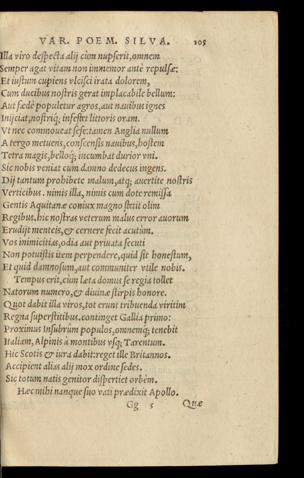 VAR. POEM. SILVA. 105
Illa viro despecta alij cùm nupserit, omnem
Semper agat vitam non inmemor antè repulsæ:
Et iustum cupiens vlcisci irata dolorem,
Cum ducibus nostris gerat implacabile bellum:
Aut fœdè populetur agros, aut nauibus ignes
Inijciat, nostriq́; infestet littoris oram.
Vt nec commoueat sese: tamen Anglia nullum
A tergo metuens, conscensis nauibus, hostem
Tetra magis, belloq́; incumbat durior vni.
Sic nobis veniat cum damno dedecus ingens.
Dij tantum prohibete malum, atq; auertite nostris
Verticibus. nimis illa, nimis cum dote remissa
Gentis Aquitanæ coniux magno stetit olim
Regibus. hîc nostras veterum malus error auorum
Erudijt menteis, & cernere fecit acutùm.
Vos inimicitias, odia aut priuata secuti
Non potuistis item perpendere, quid sit honestum,
Et quid damnosum, aut communiter vtile nobis.
Tempus erit, cùm læta domus se regia tollet
Natorum numero, & diuinæ stirpis honore.
Quot dabit illa viros, tot erunt tribuenda viritim
Regna superstitibus. continget Gallia primo:
Proximus Insubrùm populos, omnemq́; tenebit
Italiam, Alpinis à montibus vsq; Tarentum.
Hic Scotis & iura dabit: reget ille Britannos.
Accipient alias alij mox ordine sedes.
Sic totum natis genitor dispertiet orbem.
Hæc mihi nanque suo vati prædixit Apollo.
Gg 5 Quæ